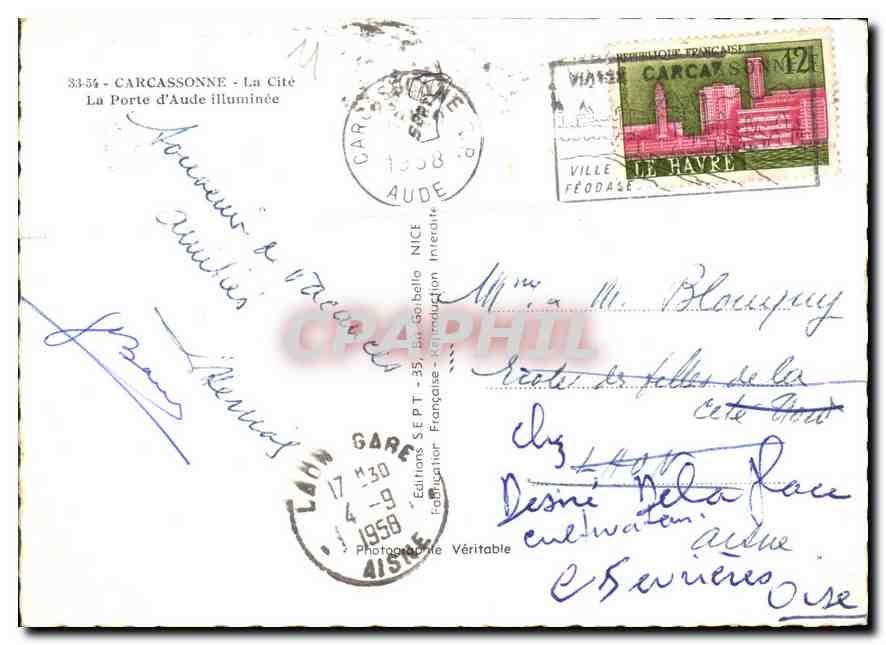 33-54 - CARCASSONNE - La Cité
La Porte d'Aude illuminée
11
CARCASSONNE R.P.
1958
AUDE
REPUBLIQUE FRANÇAISE
12f
LE HAVRE
CARCASSONNE
VILLE
FÉODALE
Souvenir de vacances
amitiés
Editions S.E.P.T - 35, Bd Gorbella NICE
Fabrication Française - Reproduction Interdite
CPAPHIL
Mme & M.
Ecole des filles de la
cité
LAON
chez
Désiré Delaplace
cultivateur
Aisne
Oise
LAON GARE
17 H30
4 -9
1958
AISNE
Photographie Véritable